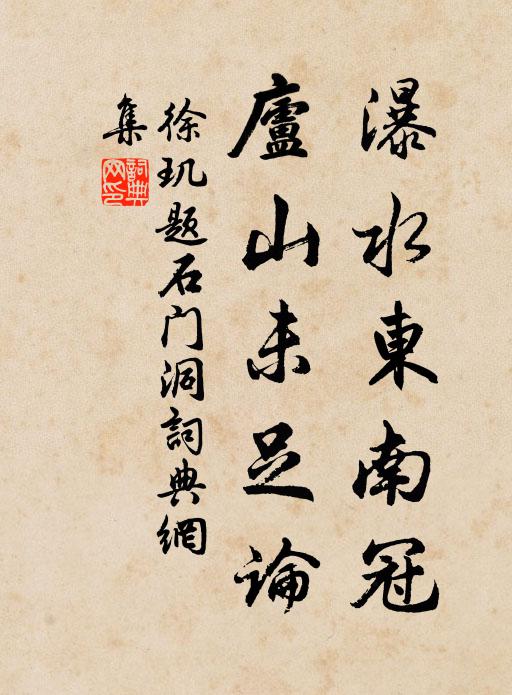 瀑水東南冠
廬山未足論
徐玑题石门洞詞典網
集
詞典网印